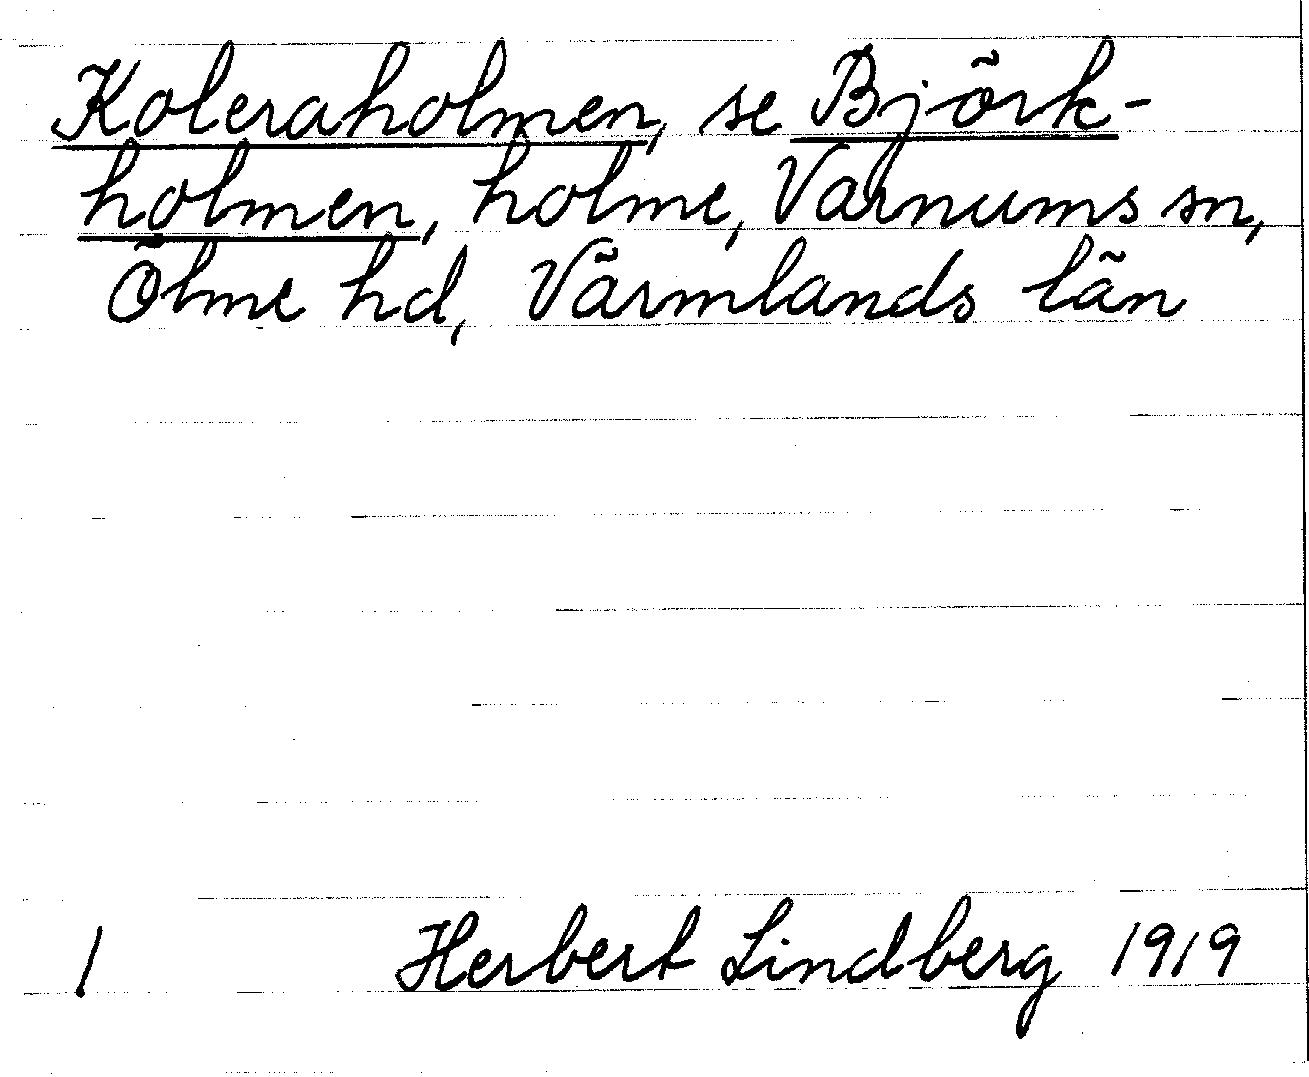 Koleraholmen, se Björk-
holmen, holme, Varnums sn,
Ölme hd, Värmlands län
1 Herbert Lindberg 1919